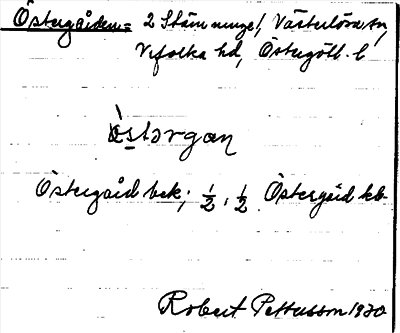 Östergården = 2 Stämninge!, Västerlösa sn,
Vifolka hd, Östergötl. l
östərgan
Östergård bek. ; 1/2, 1/2 Östergård kb.
Robert Pettersson 1930